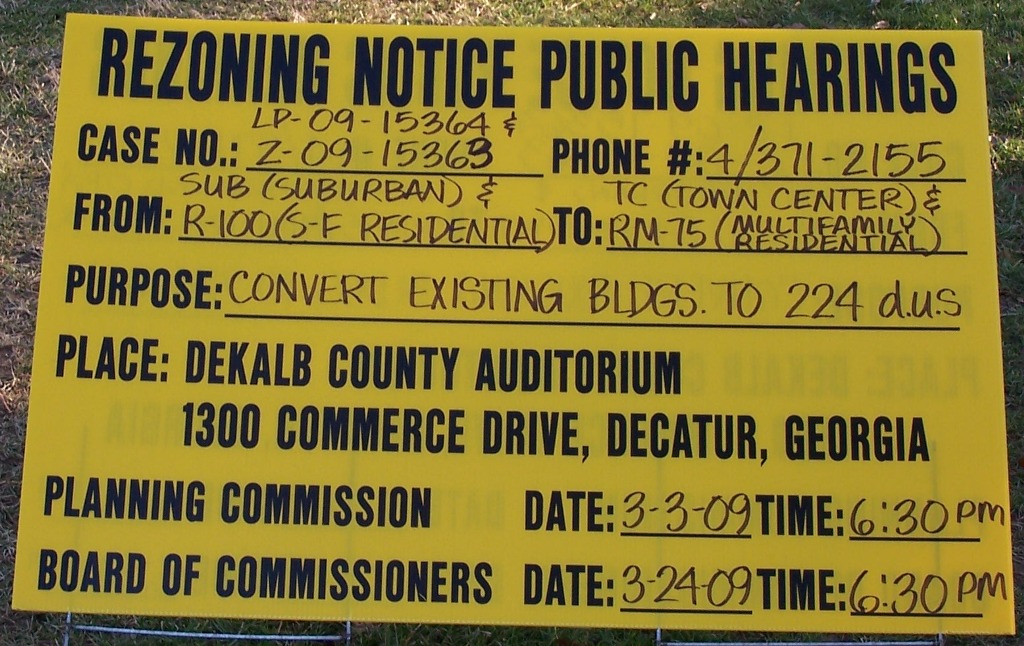 REZONING NOTICE PUBLIC HEARINGS
LP-09-15364 &
CASE NO.: Z-09-15363 PHONE #: 4/371-2155
SUB (SUBURBAN) & TC (TOWN CENTER) &
FROM: R-100 (S-F RESIDENTIAL) TO: RM-75 (MULTIFAMILY
RESIDENTIAL)
PURPOSE: CONVERT EXISTING BLDGS. TO 224 d.u.s
PLACE: DEKALB COUNTY AUDITORIUM
1300 COMMERCE DRIVE, DECATUR, GEORGIA
PLANNING COMMISSION DATE: 3-3-09 TIME: 6:30 PM
BOARD OF COMMISSIONERS DATE: 3-24-09 TIME: 6:30 PM